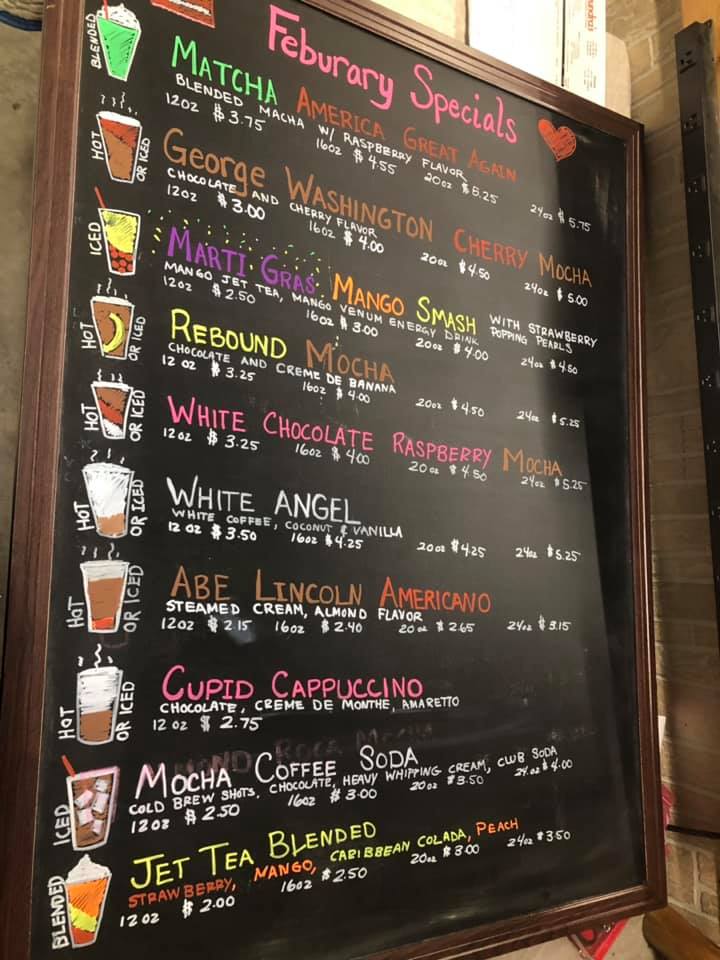 Feburary Specials
BLENDED
MATCHA AMERICA GREAT AGAIN
BLENDED MACHA W/ RASPBERRY FLAVOR
12oz $3.75 16oz $4.55 20oz $5.25 24oz $5.75
HOT OR ICED
George WASHINGTON CHERRY MOCHA
CHOCOLATE AND CHERRY FLAVOR
12oz $3.00 16oz $4.00 20oz $4.50 24oz $5.00
ICED
MARTI GRAS MANGO SMASH WITH STRAWBERRY POPPING PEARLS
MANGO JET TEA, MANGO VENUM ENERGY DRINK
12oz $2.50 16oz $3.00 20oz $4.00 24oz $4.50
HOT OR ICED
REBOUND MOCHA
CHOCOLATE AND CREME DE BANANA
12 oz $3.25 16oz $4.00 20oz $4.50 24oz $5.25
HOT OR ICED
WHITE CHOCOLATE RASPBERRY MOCHA
12oz $3.25 16oz $4.00 20oz $4.50 24oz $5.25
HOT OR ICED
WHITE ANGEL
WHITE COFFEE, COCONUT & VANILLA
12 oz $3.50 16oz $4.25 20oz $4.25 24oz $5.25
HOT OR ICED
ABE LINCOLN AMERICANO
STEAMED CREAM, ALMOND FLAVOR
12oz $2.15 16oz $2.40 20oz $2.65 24oz $3.15
HOT OR ICED
CUPID CAPPUCCINO
CHOCOLATE, CREME DE MONTHE, AMARETTO
12 oz $2.75
ICED
MOCHA COFFEE SODA
COLD BREW SHOTS, CHOCOLATE, HEAVY WHIPPING CREAM, CLUB SODA
12oz $2.50 16oz $3.00 20oz $3.50 24oz $4.00
BLENDED
JET TEA BLENDED
STRAWBERRY, MANGO, CARIBBEAN COLADA, PEACH
12 oz $2.00 16oz $2.50 20oz $3.00 24oz $3.50